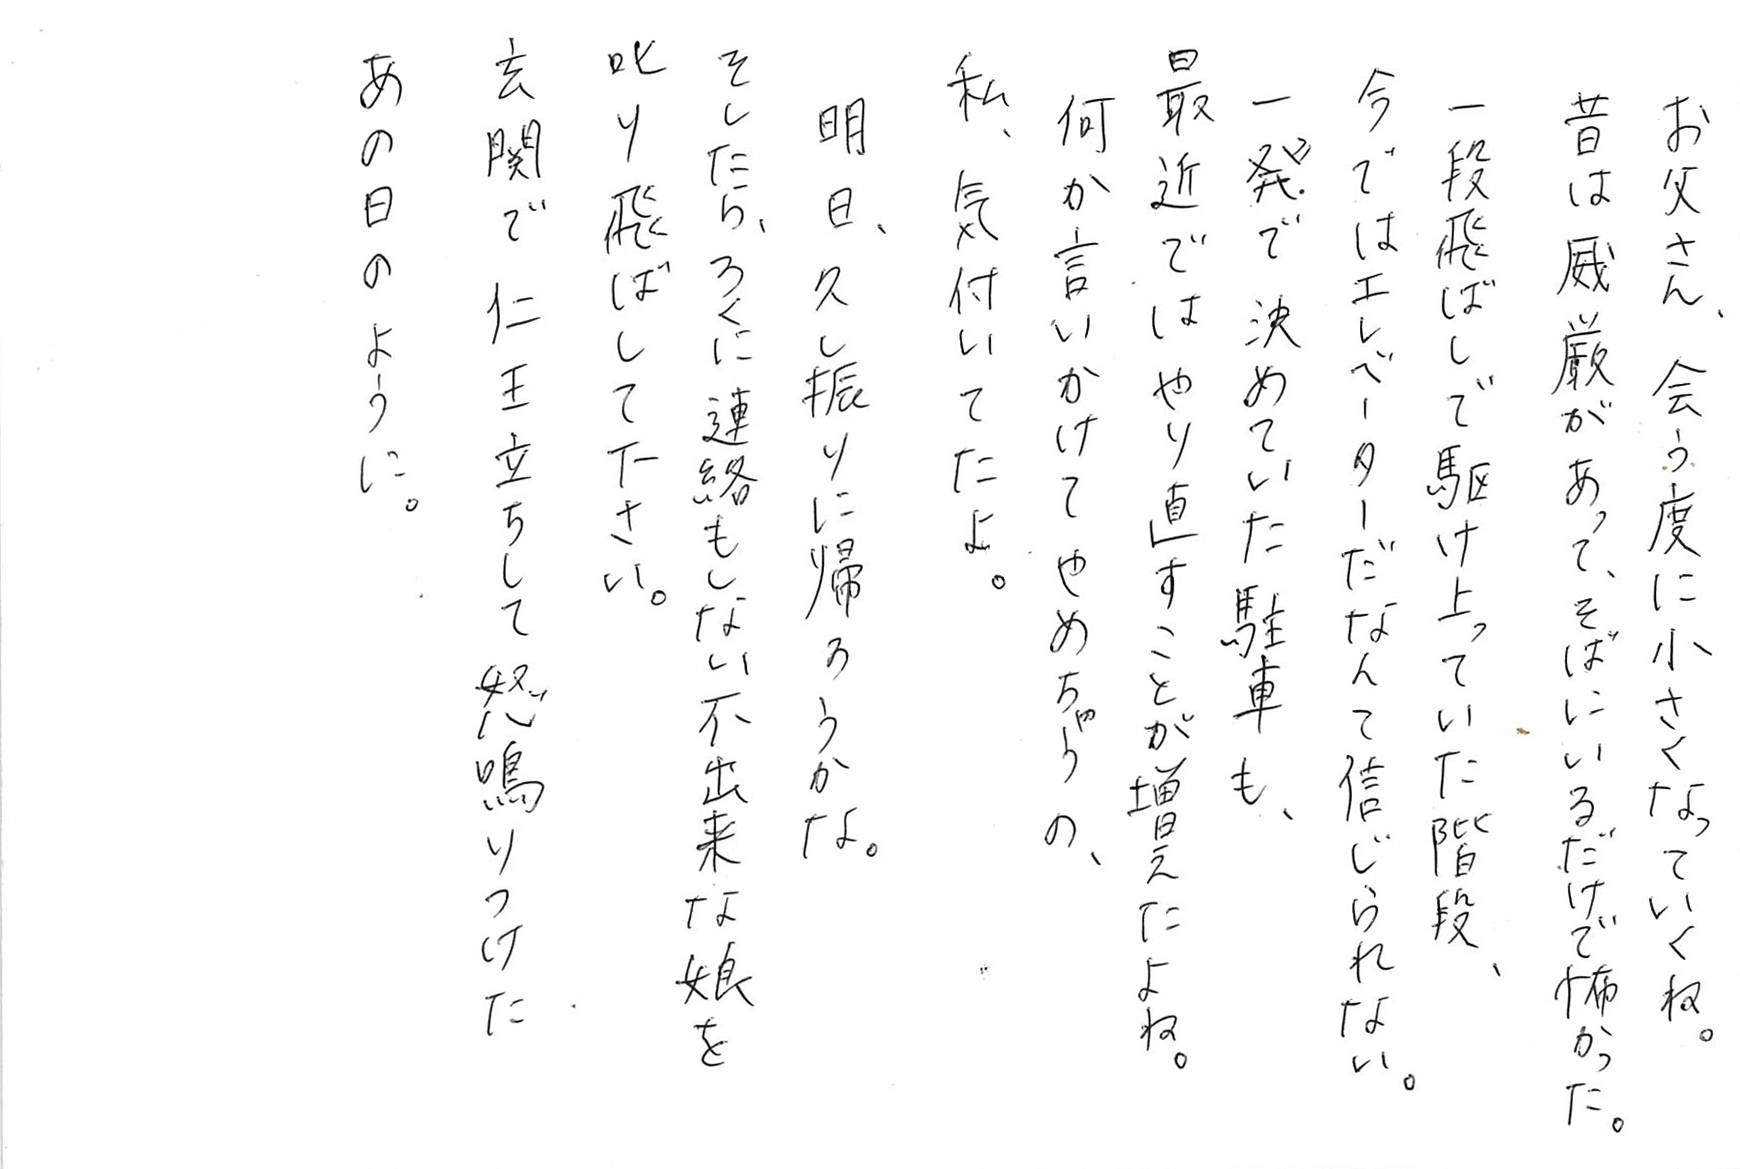 お父さん、会う度に小さくなっていくね。
昔は威厳があって、そばにいるだけで怖かった。
一段飛ばしで駆け上っていた階段、
今ではエレベーターだなんて信じられない。
一発で決めていた駐車も、
最近ではやり直すことが増えたよね。
何か言いかけてやめちゃうの、
私、気付いてたよ。
明日、久し振りに帰ろうかな。
そしたら、ろくに連絡もしない不出来な娘を
叱り飛ばして下さい。
玄関で仁王立ちして怒鳴りつけた
あの日のように。